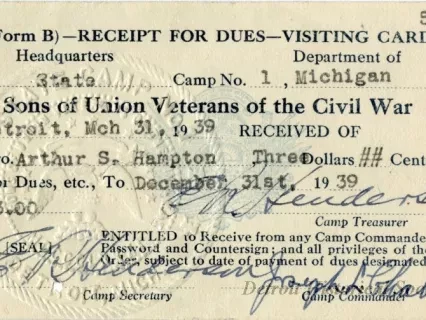 Form B)—RECEIPT FOR DUES—VISITING CARD
Headquarters Department of
State Camp No. 1, Michigan
Sons of Union Veterans of the Civil War
etroit, Mch 31, 1939 RECEIVED OF
ro. Arthur S. Hampton Three Dollars ## Cent
or Dues, etc., To December 31st, 1939
3.00
Camp Treasurer
[SEAL] ENTITLED to Receive from any Camp Commande
Password and Countersign; and all privileges of th
Order, subject to date of payment of dues designated
Henderson Joseph
Camp Secretary Camp Commander